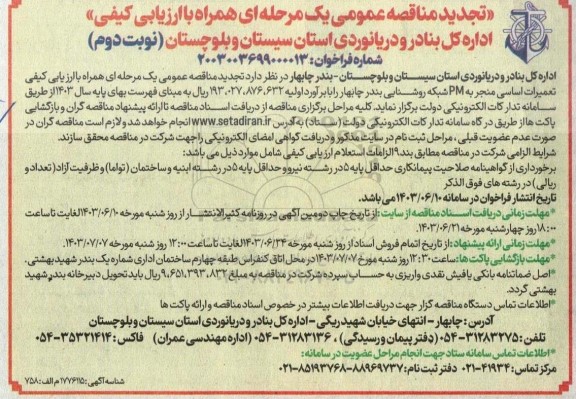 «تجدید مناقصه عمومی یک مرحله ای همراه با ارزیابی کیفی»
اداره کل بنادر و دریانوردی استان سیستان و بلوچستان (نوبت دوم)
شماره فراخوان: ۲۰۰۳۰۰۳۶۹۹۰۰۰۰۱۳
اداره کل بنادر و دریانوردی استان سیستان و بلوچستان - بندر چابهار در نظر دارد تجدید مناقصه عمومی یک مرحله ای همراه با ارزیابی کیفی
تعمیرات اساسی منجر به PM شبکه روشنایی بندر چابهار را با برآورد اولیه ۱۹۳،۰۲۷،۸۷۶،۶۳۲ ریال به مبنای فهرست بهای پایه سال ۱۴۰۳ از طریق
سامانه تدارکات الکترونیکی دولت برگزار نماید. کلیه مراحل برگزاری مناقصه از دریافت اسناد مناقصه تا ارائه پیشنهاد مناقصه گران و بازگشایی
پاکت ها از طریق درگاه سامانه تدارکات الکترونیکی دولت (ستاد) به آدرس www.setadiran.ir انجام خواهد شد و لازم است مناقصه گران در
صورت عدم عضویت قبلی، مراحل ثبت نام در سایت مذکور و دریافت گواهی امضای الکترونیکی را جهت شرکت در مناقصه محقق سازند.
شرایط الزامی شرکت در مناقصه مطابق بند ۱۹ الزامات استعلام ارزیابی کیفی شامل موارد ذیل می باشد:
برخورداری از گواهینامه صلاحیت پیمانکاری حداقل پایه ۵ در رشته نیرو و حداقل پایه ۵ در رشته ابنیه و ساختمان (تواما) و ظرفیت آزاد (تعداد و
ریالی) در رشته های فوق الذکر
تاریخ انتشار فراخوان در سامانه ۱۴۰۳/۰۶/۱۰ می باشد.
*مهلت زمانی دریافت اسناد مناقصه از سایت: از تاریخ چاپ دومین آگهی در روزنامه کثیرالانتشار از روز شنبه مورخه ۱۴۰۳/۰۶/۱۰ لغایت تا ساعت
۱۸:۰۰ روز چهارشنبه مورخه ۱۴۰۳/۰۶/۲۱
*مهلت زمانی ارائه پیشنهاد: از تاریخ اتمام فروش اسناد از روز شنبه مورخه ۱۴۰۳/۰۶/۲۴ لغایت تا ساعت ۱۲:۰۰ روز شنبه مورخه ۱۴۰۳/۰۷/۰۷.
*مهلت بازگشایی پاکت ها: ساعت ۱۲:۳۰ روز شنبه مورخ ۱۴۰۳/۰۷/۰۷ در محل اتاق کنفراس طبقه چهارم ساختمان اداری شماره یک بندر شهید بهشتی.
*اصل ضمانتنامه بانکی یا فیش نقدی واریزی به حساب سپرده شرکت در مناقصه به مبلغ ۹،۶۵۱،۳۹۳،۸۳۲ ریال باید تحویل دبیرخانه بندر شهید
بهشتی گردد.
*اطلاعات تماس دستگاه مناقصه گزار جهت دریافت اطلاعات بیشتر در خصوص اسناد مناقصه و ارائه پاکت ها
آدرس: چابهار - انتهای خیابان شهید ریگی - اداره کل بنادر و دریانوردی استان سیستان و بلوچستان
تلفن: ۳۱۲۸۳۲۷۵-۰۵۴ (دفتر پیمان و رسیدگی)، ۳۱۲۸۳۱۳۶-۰۵۴ (اداره مهندسی عمران) فاکس: ۳۵۳۲۱۴۱۴-۰۵۴
*اطلاعات تماس سامانه ستاد جهت انجام مراحل عضویت در سامانه:
مرکز تماس: ۴۱۹۳۴-۰۲۱ دفتر ثبت نام: ۸۸۹۶۹۷۳۷ و ۸۵۱۹۳۷۶۸-۰۲۱
شناسه آگهی: ۱۷۷۶۱۱۵ م الف: ۷۵۸